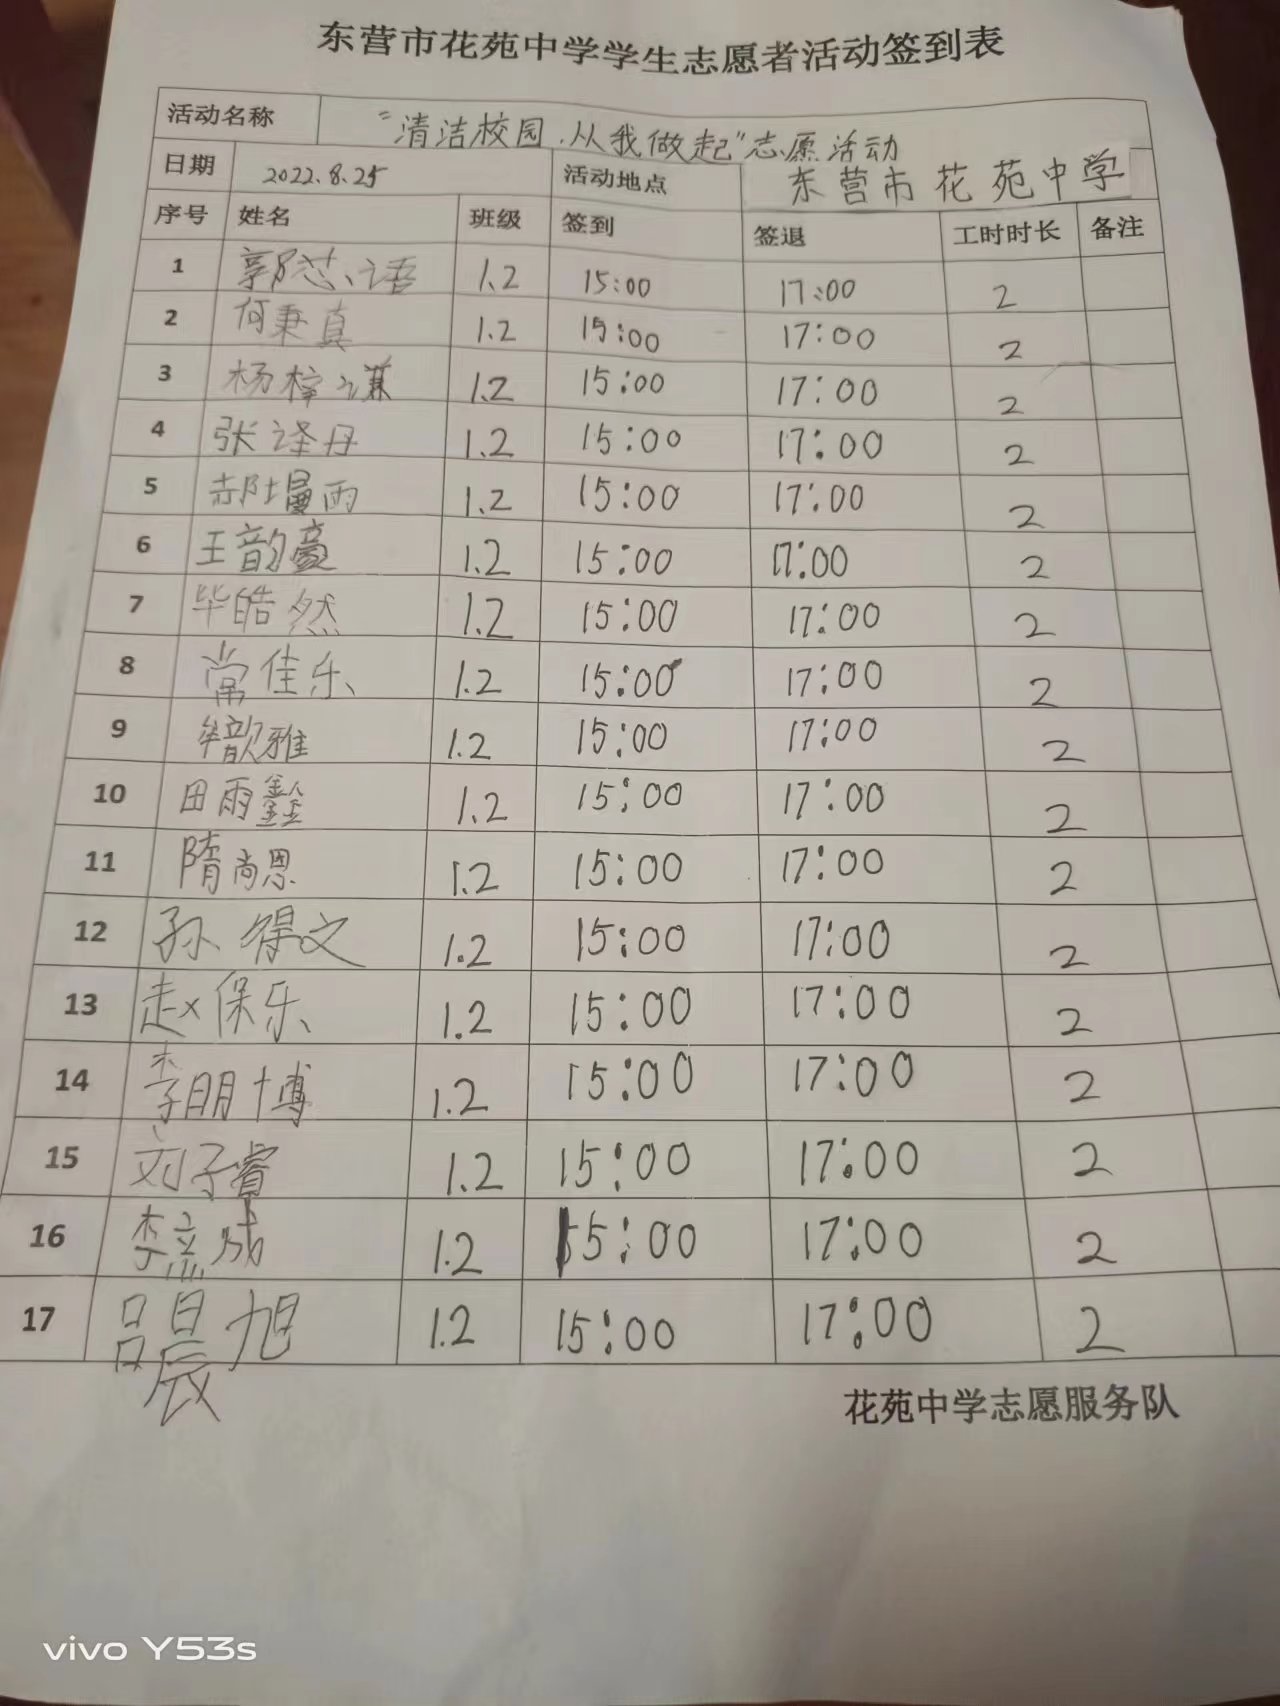 东营市花苑中学学生志愿者活动签到表
活动名称 “清洁校园.从我做起”志愿活动
日期 2022.8.25 活动地点 东营市花苑中学
序号 姓名 班级 签到 签退 工时时长 备注
1 郭芯语 1.2 15:00 17:00 2
2 何秉真 1.2 15:00 17:00 2
3 杨梓谦 1.2 15:00 17:00 2
4 张译丹 1.2 15:00 17:00 2
5 郝 雨 1.2 15:00 17:00 2
6 王韵豪 1.2 15:00 17:00 2
7 毕皓然 1.2 15:00 17:00 2
8 常佳乐 1.2 15:00 17:00 2
9 牟歆雅 1.2 15:00 17:00 2
10 田雨鑫 1.2 15:00 17:00 2
11 隋尚恩 1.2 15:00 17:00 2
12 孙得文 1.2 15:00 17:00 2
13 赵保乐 1.2 15:00 17:00 2
14 李明博 1.2 15:00 17:00 2
15 刘子睿 1.2 15:00 17:00 2
16 李 成 1.2 15:00 17:00 2
17 吕晨旭 1.2 15:00 17:00 2
花苑中学志愿服务队
vivo Y53s